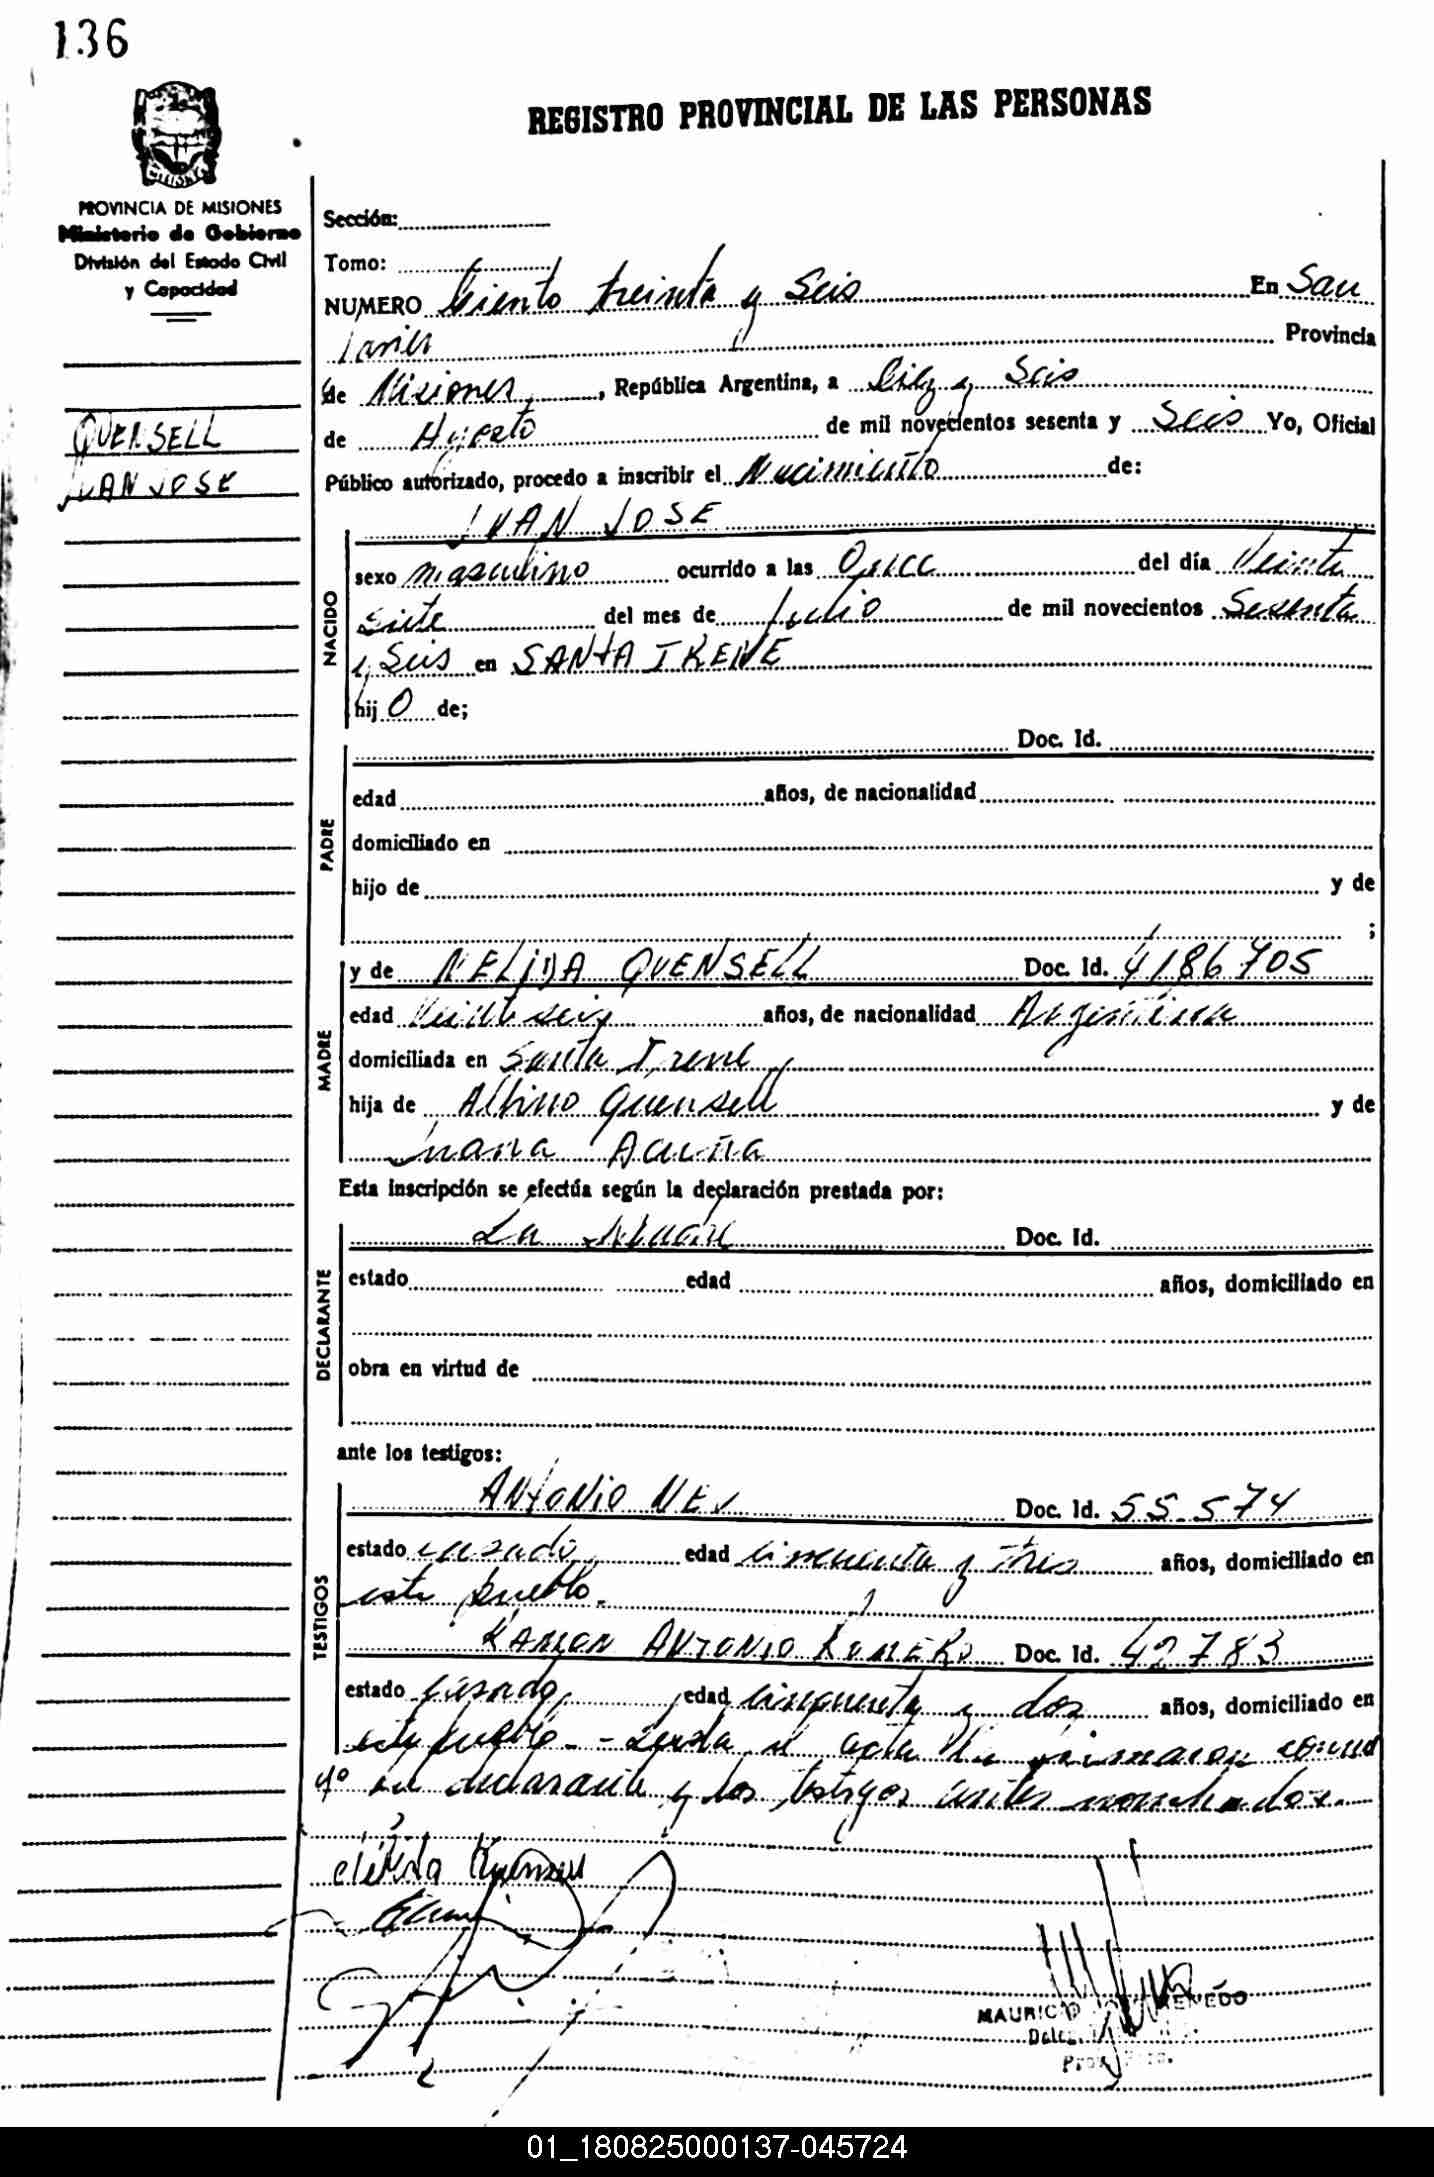 136
REGISTRO PROVINCIAL DE LAS PERSONAS
PROVINCIA DE MISIONES
Ministerio de Gobierno
División del Estado Civil
y Capacidad
QUENSELL
JUAN JOSE
Sección:
Tomo:
NUMERO Ciento treinta y Seis En San
Javier Provincia
de Misiones, República Argentina, a Diez y Seis
de Agosto de mil novecientos sesenta y Seis Yo, Oficial
Público autorizado, procedo a inscribir el Nacimiento de:
JUAN JOSE
NACIDO
sexo masculino ocurrido a las Once del día Veinte
Siete del mes de Julio de mil novecientos Sesenta
y Seis en SANTA IRENE
hijO de;
PADRE
Doc. Id.
edad años, de nacionalidad
domiciliado en
hijo de y de
;
MADRE
y de NELIDA QUENSELL Doc. Id. 4186705
edad Veintiseis años, de nacionalidad Argentina
domiciliada en Santa Irene
hija de Albino Quensell y de
Juana Acuña
Esta inscripción se efectúa según la declaración prestada por:
DECLARANTE
La Madre Doc. Id.
estado edad años, domiciliado en
obra en virtud de
ante los testigos:
TESTIGOS
ANTONIO Doc. Id. 55.574
estado casado edad cincuenta y tres años, domiciliado en
este pueblo.
RAMON ANTONIO ROMERO Doc. Id. 42783
estado casado edad cincuenta y dos años, domiciliado en
este pueblo.- Leida el acta la
la declarante y los testigos antes nombrados.
MAURICIO
01_180825000137-045724